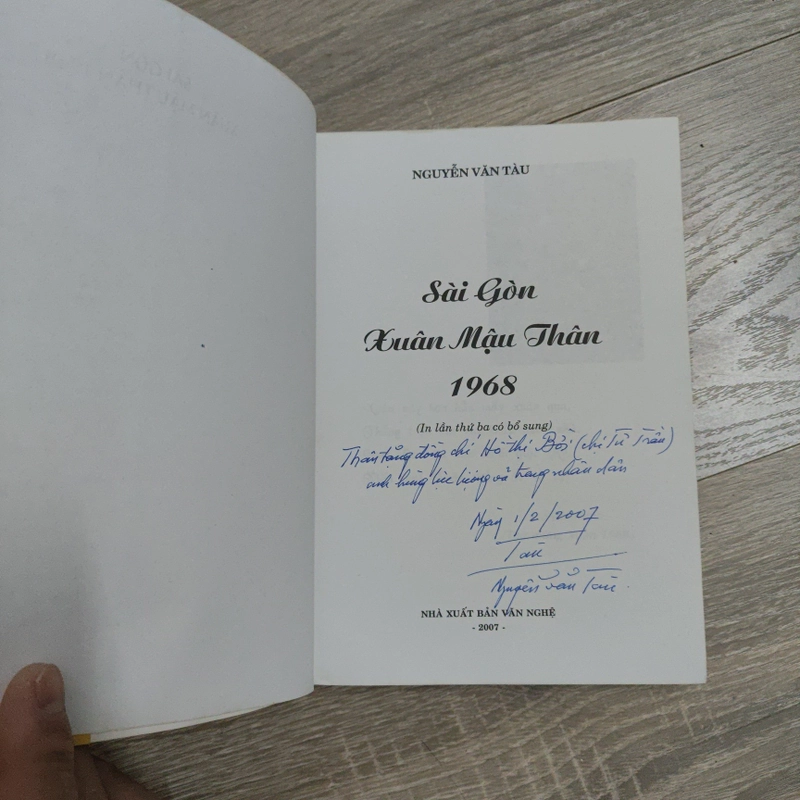 NGUYỄN VĂN TÀU
Sài Gòn
Xuân Mậu Thân
1968
(In lần thứ ba có bổ sung)
Thân tặng đồng chí Hồ thị Bởi (chị Tư Trần)
anh hùng lực lượng vũ trang nhân dân
Ngày 1/2/2007
Tàu
Nguyễn văn Tàu
NHÀ XUẤT BẢN VĂN NGHỆ
- 2007 -